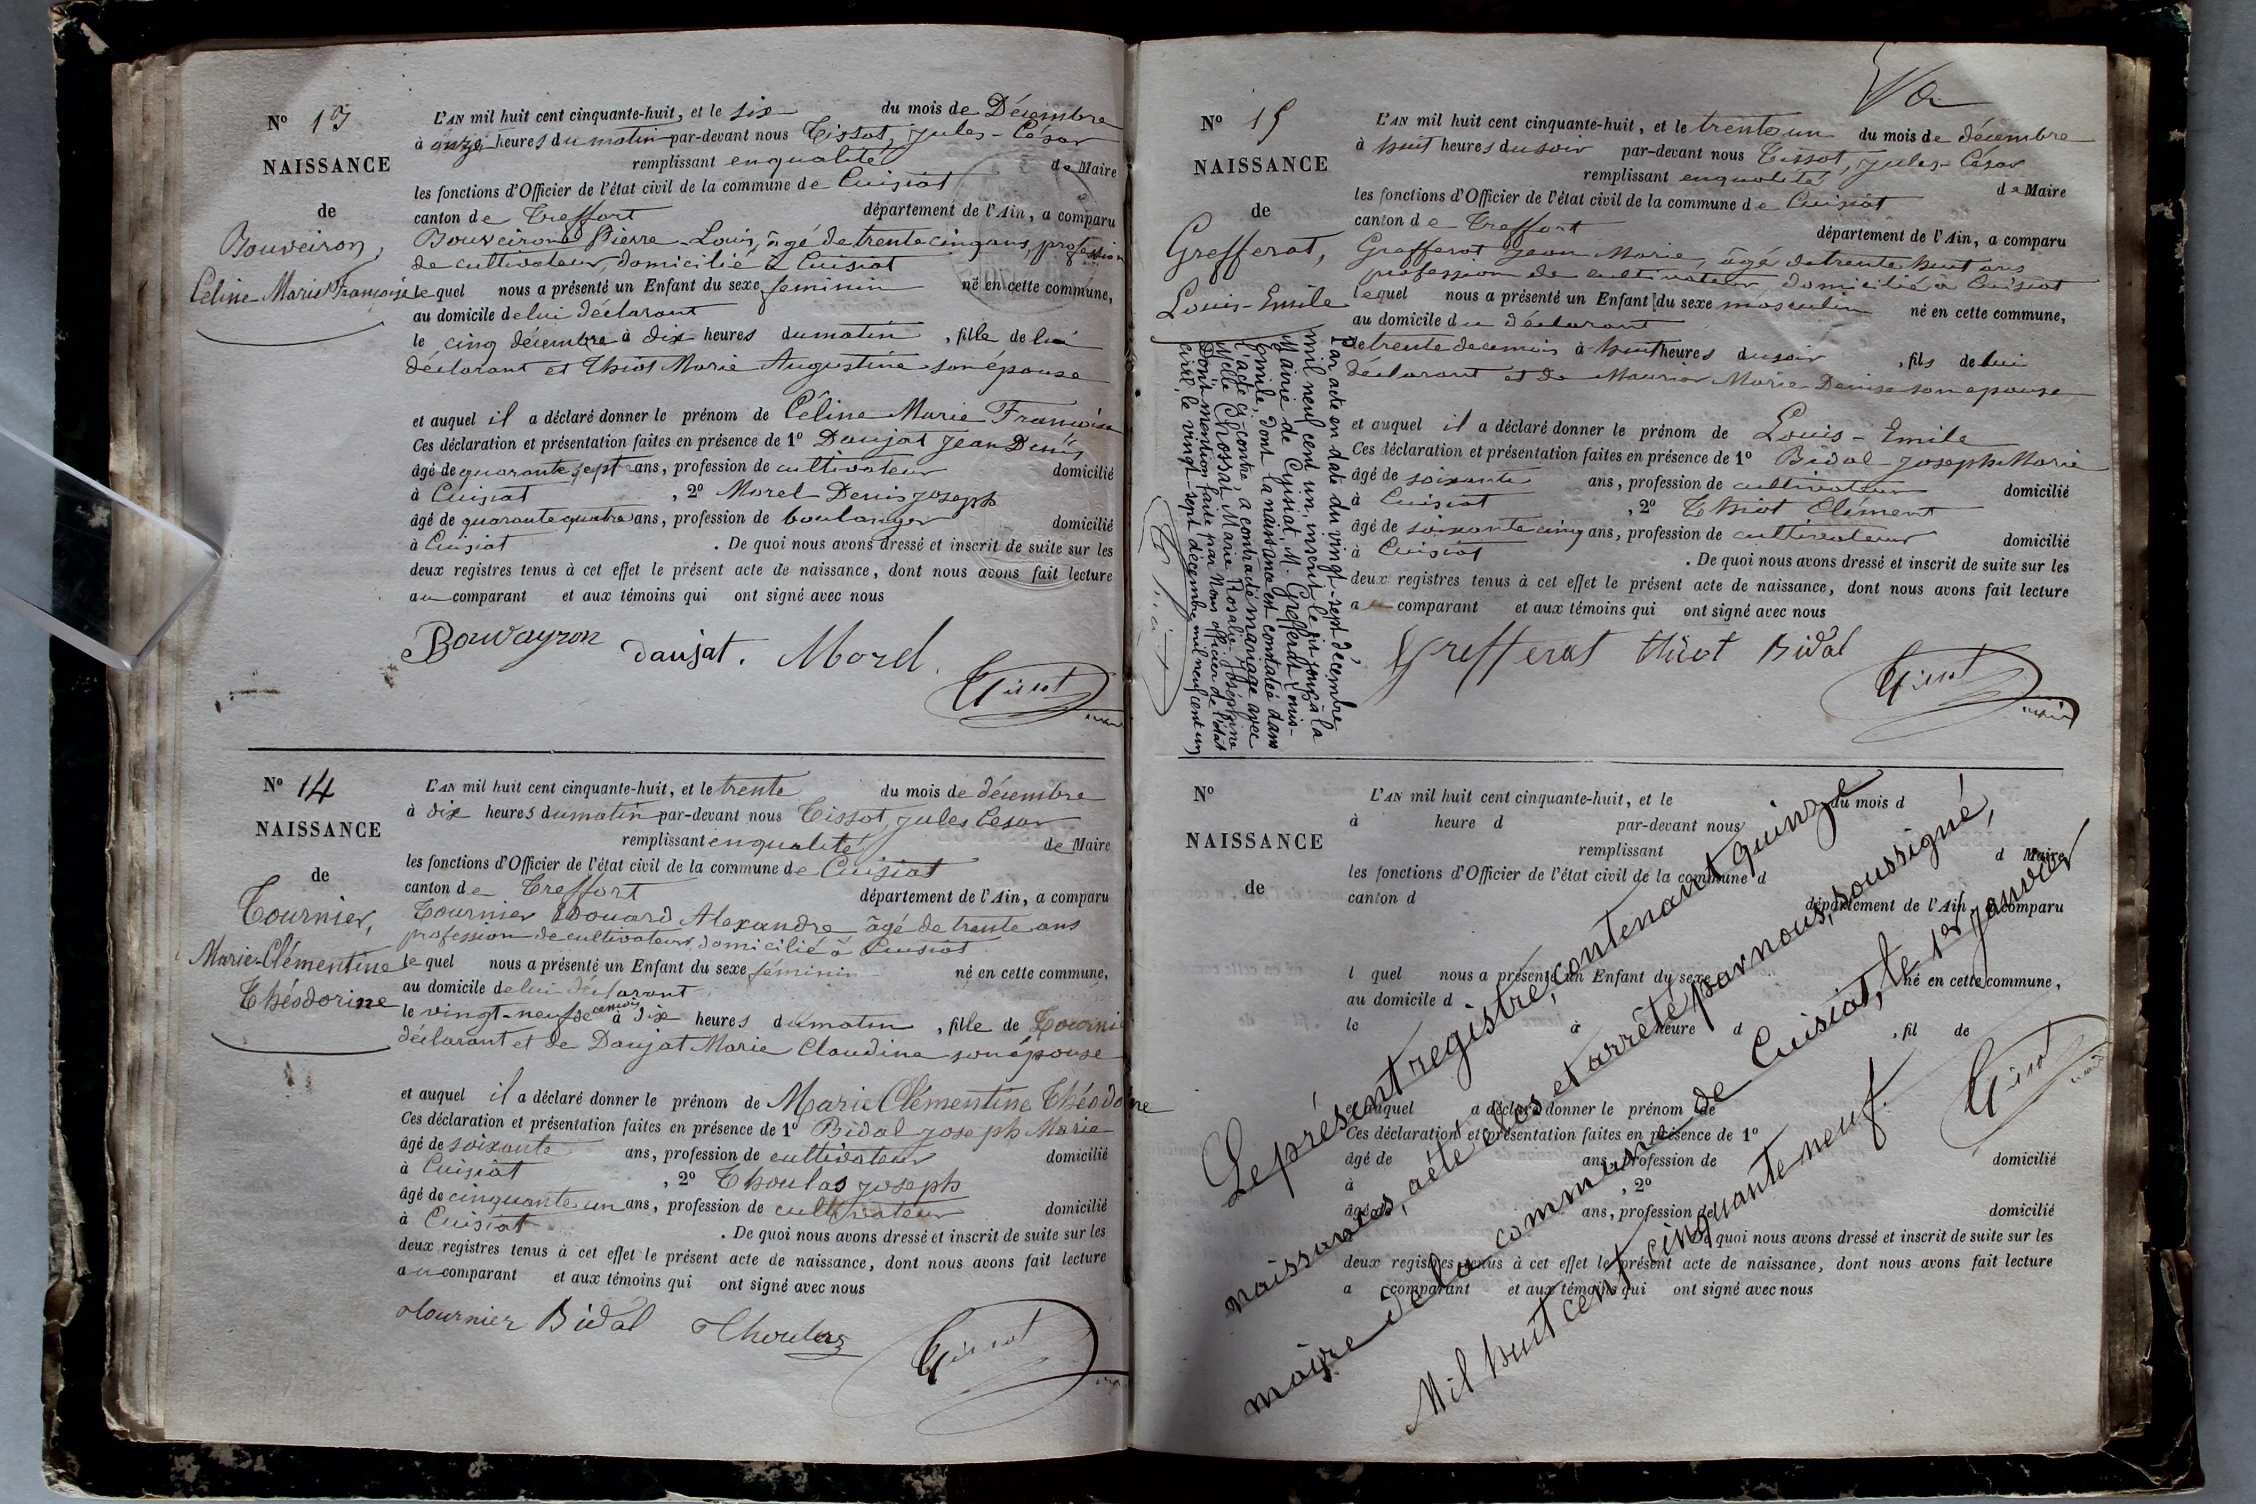 N° 13
NAISSANCE
de
Bouveiron,
Céline Marie Françoise
L'AN mil huit cent cinquante-huit, et le six du mois de Décembre
à onze heures du matin par-devant nous Tissot, Jules-César
remplissant en qualité de Maire
les fonctions d'Officier de l'état civil de la commune de Cuisiat
canton de Treffort département de l'Ain, a comparu
Bouveiron Pierre-Louis, âgé de trente cinq ans, profession
de cultivateur, domicilié à Cuisiat
lequel nous a présenté un Enfant du sexe feminin né en cette commune,
au domicile de lui déclarant
le cinq décembre à dix heures du matin, fille de lui
déclarant et Thiot Marie Augustine son épouse
et auquel il a déclaré donner le prénom de Céline Marie Françoise
Ces déclaration et présentation faites en présence de 1° Daujat Jean Denis
âgé de quarante sept ans, profession de cultivateur domicilié
à Cuisiat, 2° Morel Denis Joseph
âgé de quarante quatre ans, profession de boulanger domicilié
à Cuisiat. De quoi nous avons dressé et inscrit de suite sur les
deux registres tenus à cet effet le présent acte de naissance, dont nous avons fait lecture
au comparant et aux témoins qui ont signé avec nous
Bouvayron Daujat. Morel.
Tissot
maire
N° 14
NAISSANCE
de
Tournier,
Marie-Clémentine
Théodorine
L'AN mil huit cent cinquante-huit, et le trente du mois de décembre
à dix heures du matin par-devant nous Tissot Jules César
remplissant en qualité de Maire
les fonctions d'Officier de l'état civil de la commune de Cuisiat
canton de Treffort département de l'Ain, a comparu
Tournier Edouard Alexandre âgé de trente ans
profession de cultivateur, domicilié à Cuisiat
lequel nous a présenté un Enfant du sexe féminin né en cette commune,
au domicile de lui déclarant
le vingt-neuf de ce mois à dix heures du matin, fille de Tournier
déclarant et de Daujat Marie Claudine son épouse
et auquel il a déclaré donner le prénom de Marie Clémentine Théodorine
Ces déclaration et présentation faites en présence de 1° Bidal Joseph Marie
âgé de soixante ans, profession de cultivateur domicilié
à Cuisiat, 2° Thoulas Joseph
âgé de cinquante un ans, profession de cultivateur domicilié
à Cuisiat. De quoi nous avons dressé et inscrit de suite sur les
deux registres tenus à cet effet le présent acte de naissance, dont nous avons fait lecture
au comparant et aux témoins qui ont signé avec nous
Tournier Bidal Thoulas
Tissot
N° 15
NAISSANCE
de
Grefferat,
Louis-Emile
Par acte en date du vingt-sept décembre
mil neuf cent un, inscrit le dit jour à la
Mairie de Cuisiat, M. Grefferat Louis-
Emile, dont la naissance est constatée dans
l'acte ci-contre a contracté mariage avec
Melle Chossat Marie Rosalie Joséphine
Dont mention faite par Nous officier de l'état
civil, le vingt-sept décembre mil neuf cent un
L'AN mil huit cent cinquante-huit, et le trente un du mois de décembre
à huit heures du soir par-devant nous Tissot, Jules-César
remplissant en qualité de Maire
les fonctions d'Officier de l'état civil de la commune de Cuisiat
canton de Treffort département de l'Ain, a comparu
Grefferat Jean Marie, âgé de trente huit ans
profession de cultivateur, domicilié à Cuisiat
lequel nous a présenté un Enfant du sexe masculin né en cette commune,
au domicile du déclarant
le trente de ce mois à huit heures du soir, fils de lui
déclarant et de Maurier Marie Denise son épouse
et auquel il a déclaré donner le prénom de Louis-Emile
Ces déclaration et présentation faites en présence de 1° Bidal Joseph Marie
âgé de soixante ans, profession de cultivateur domicilié
à Cuisiat, 2° Thiot Clément
âgé de soixante cinq ans, profession de cultivateur domicilié
à Cuisiat. De quoi nous avons dressé et inscrit de suite sur les
deux registres tenus à cet effet le présent acte de naissance, dont nous avons fait lecture
au comparant et aux témoins qui ont signé avec nous
Grefferat Thiot Bidal
Tissot
maire
N°
NAISSANCE
de
L'AN mil huit cent cinquante-huit, et le du mois d
à heure d par-devant nous
remplissant d Maire
les fonctions d'Officier de l'état civil de la commune d
canton d département de l'Ain, a comparu
l quel nous a présenté un Enfant du sexe né en cette commune,
au domicile d
le à heure d, fil de
et auquel a déclaré donner le prénom de
Ces déclaration et présentation faites en présence de 1°
âgé de ans, profession de domicilié
à, 2°
âgé de ans, profession de domicilié
à De quoi nous avons dressé et inscrit de suite sur les
deux registres tenus à cet effet le présent acte de naissance, dont nous avons fait lecture
a comparant et aux témoins qui ont signé avec nous
Le présent registre, contenant quinze
naissances, a été clos et arrêté par nous, soussigné,
maire de la commune de Cuisiat, le 1er janvier
Mil huit cent cinquante neuf.
Tissot